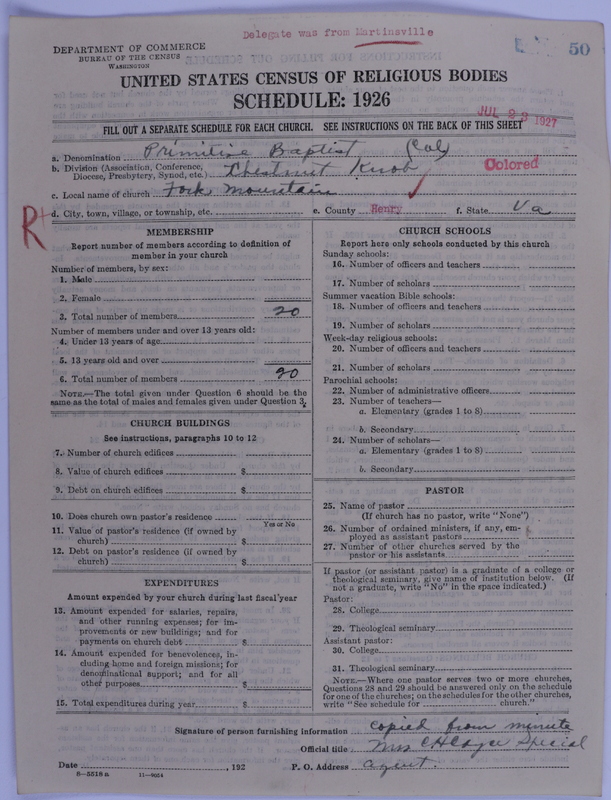 Delegate was from Martinsville
50
DEPARTMENT OF COMMERCE
BUREAU OF THE CENSUS
WASHINGTON
UNITED STATES CENSUS OF RELIGIOUS BODIES
SCHEDULE: 1926
JUL 23 1927
FILL OUT A SEPARATE SCHEDULE FOR EACH CHURCH. SEE INSTRUCTIONS ON THE BACK OF THIS SHEET
a. Denomination Primitive Baptist (Col)
b. Division (Association, Conference, Diocese, Presbytery, Synod, etc.) Chestnut Knob Colored
c. Local name of church Fork Mountain
d. City, town, village, or township, etc. e. County Henry f. State Va
R
MEMBERSHIP
Report number of members according to definition of
member in your church
Number of members, by sex:
1. Male
2. Female
3. Total number of members 20
Number of members under and over 13 years old:
4. Under 13 years of age
5. 13 years old and over
6. Total number of members 20
NOTE.—The total given under Question 6 should be the
same as the total of males and females given under Question 3.
CHURCH BUILDINGS
See instructions, paragraphs 10 to 12
7. Number of church edifices
8. Value of church edifices $
9. Debt on church edifices $
10. Does church own pastor's residence
Yes or No
11. Value of pastor's residence (if owned by
church) $
12. Debt on pastor's residence (if owned by
church) $
EXPENDITURES
Amount expended by your church during last fiscal year
13. Amount expended for salaries, repairs,
and other running expenses; for im-
provements or new buildings; and for
payments on church debt $
14. Amount expended for benevolences, in-
cluding home and foreign missions; for
denominational support; and for all
other purposes $
15. Total expenditures during year $
CHURCH SCHOOLS
Report here only schools conducted by this church
Sunday schools:
16. Number of officers and teachers
17. Number of scholars
Summer vacation Bible schools:
18. Number of officers and teachers
19. Number of scholars
Week-day religious schools:
20. Number of officers and teachers
21. Number of scholars
Parochial schools:
22. Number of administrative officers
23. Number of teachers—
a. Elementary (grades 1 to 8)
b. Secondary
24. Number of scholars—
a. Elementary (grades 1 to 8)
b. Secondary
PASTOR
25. Name of pastor
(If church has no pastor, write "None")
26. Number of ordained ministers, if any, em-
ployed as assistant pastors
27. Number of other churches served by the
pastor or his assistants
If pastor (or assistant pastor) is a graduate of a college or
theological seminary, give name of institution below. (If
not a graduate, write "No" in the space indicated.)
Pastor:
28. College
29. Theological seminary
Assistant pastor:
30. College
31. Theological seminary
NOTE.—Where one pastor serves two or more churches,
Questions 28 and 29 should be answered only on the schedule
for one of the churches; on the schedules for the other churches,
write "See schedule for church."
Signature of person furnishing information copied from minute
Official title Mrs CH Cayce Special
Date , 192 P. O. Address agent.
8—5518a 11—9054